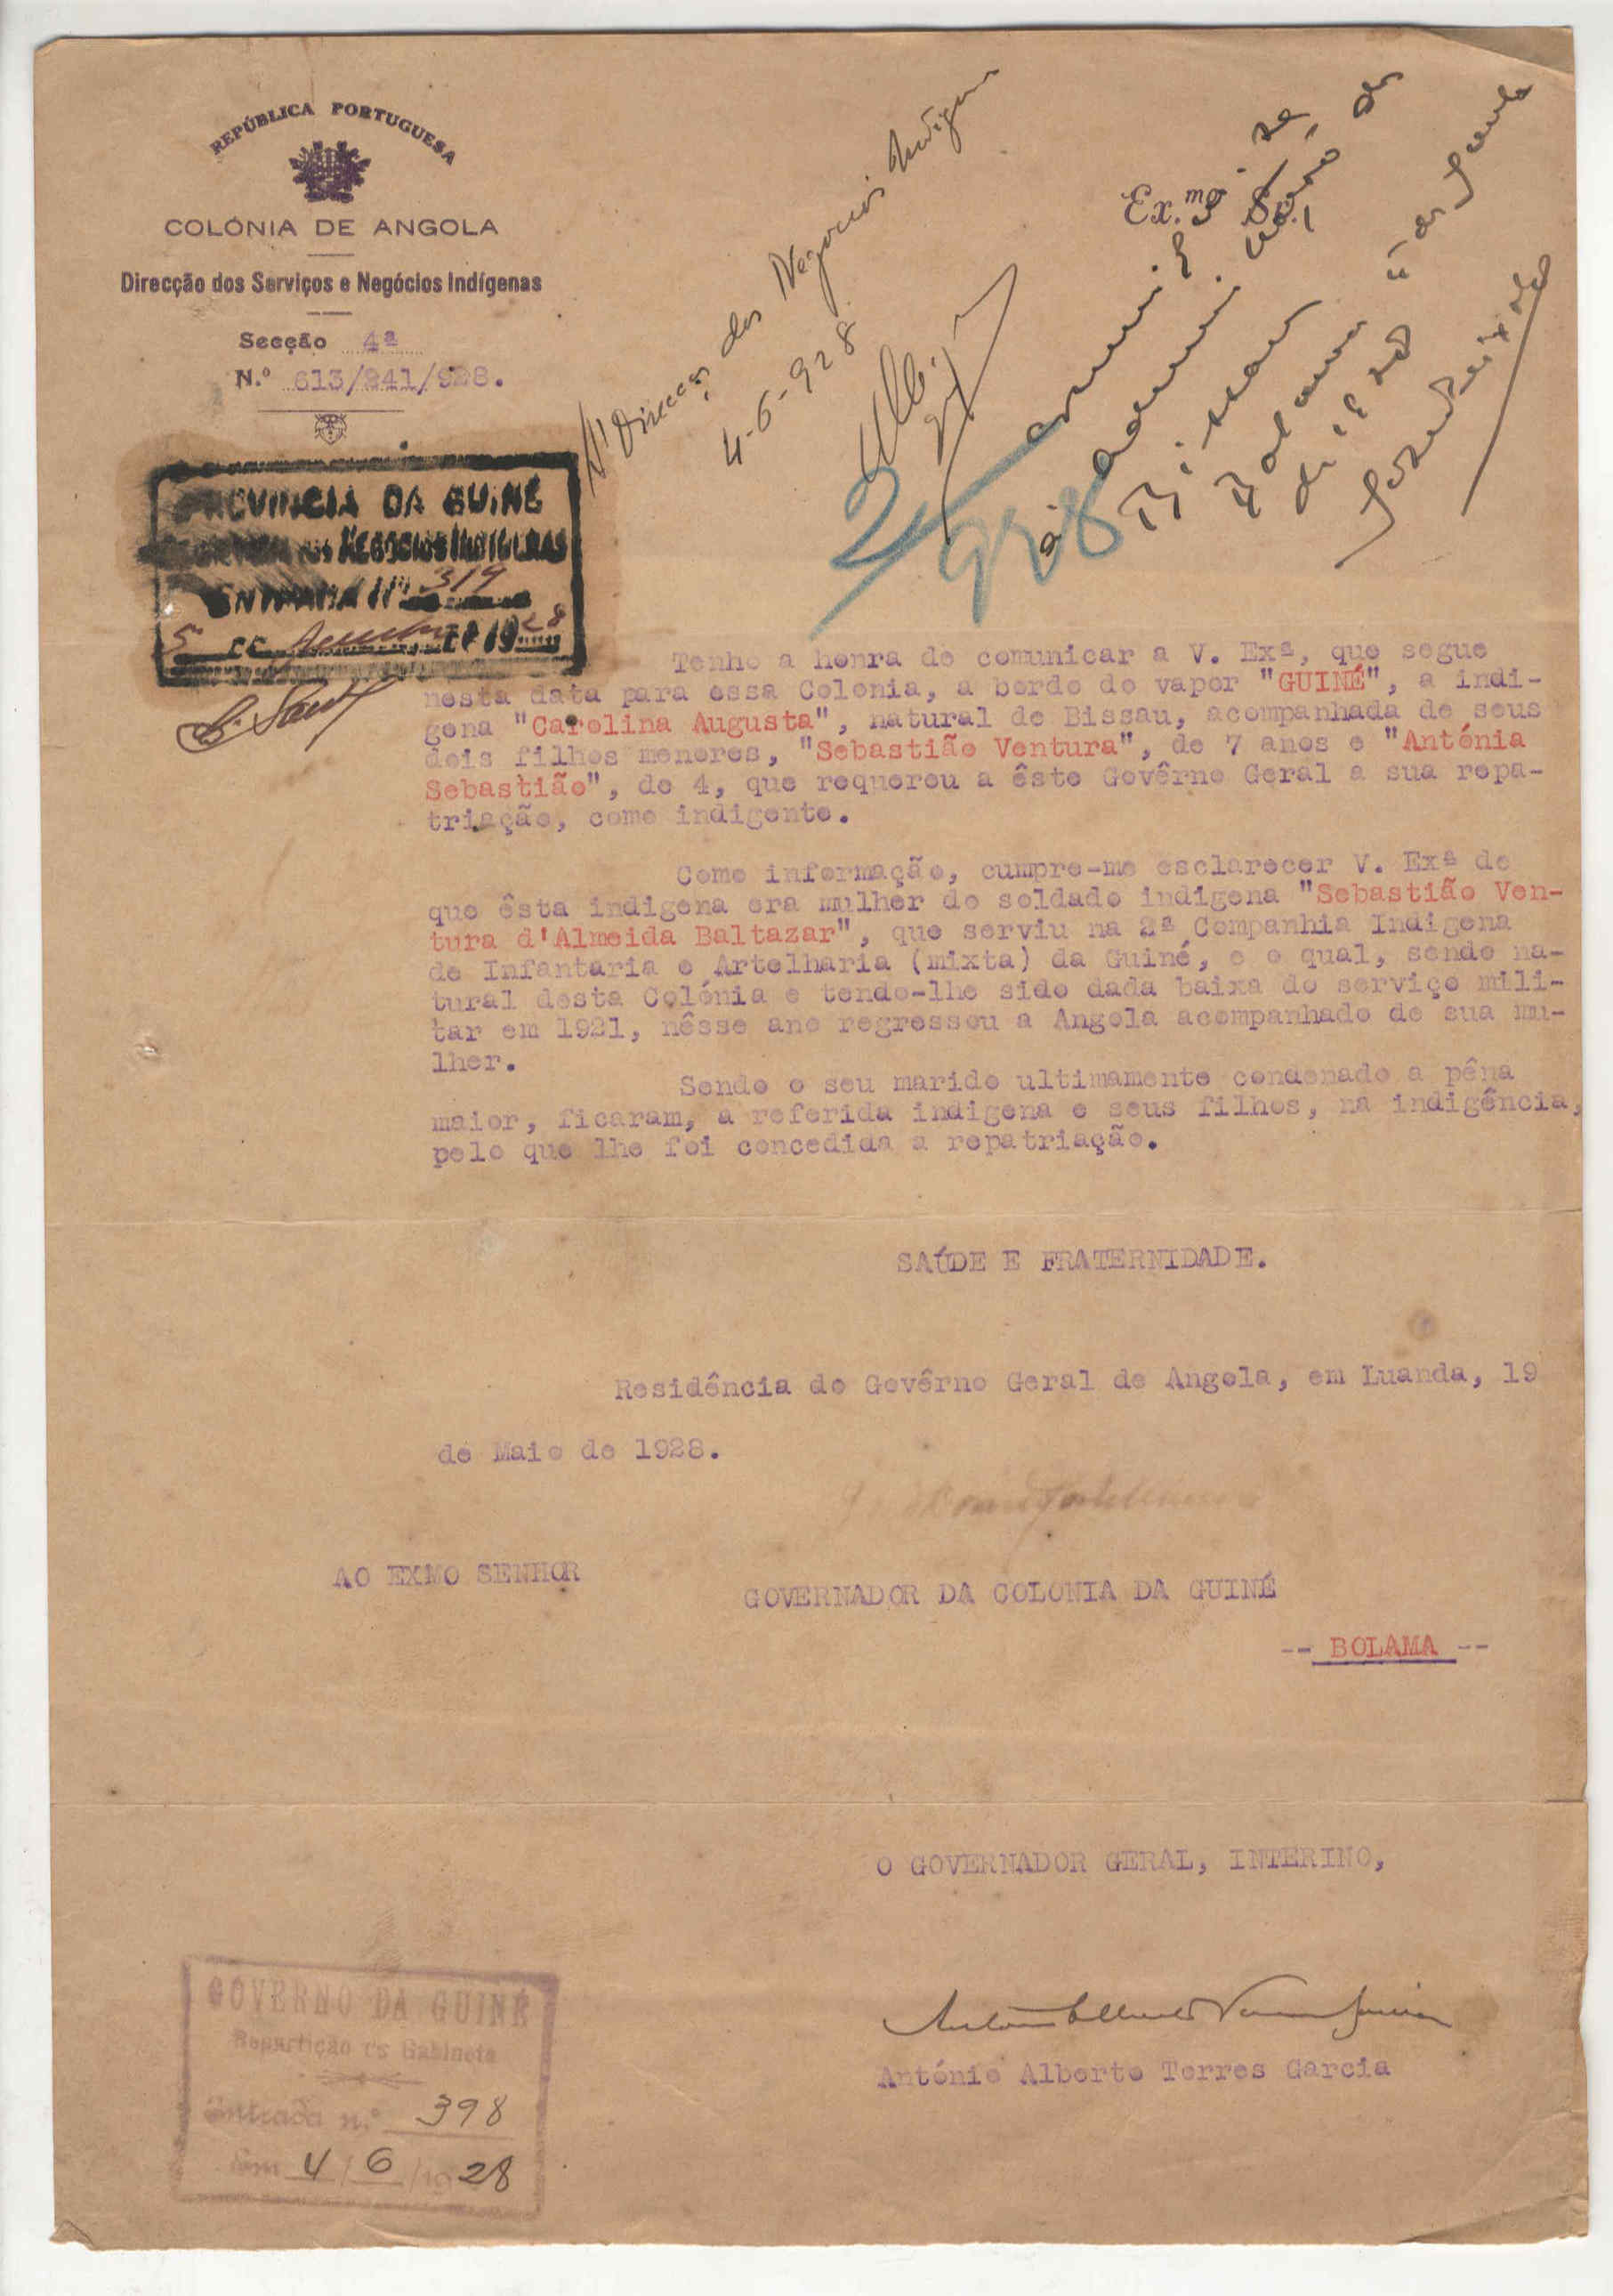 REPÚBLICA PORTUGUESA
COLÓNIA DE ANGOLA
Direcção dos Serviços e Negócios Indígenas
Secção 4ª
N.º 613/241/928.
Ex.mo Sr.
Á Direcção dos Negocios Indigenas
4-6-928
PROVINCIA DA GUINÉ
NEGOCIOS INDIGENAS
ENTRADA Nº 319
5 DE DE 1928
Tenho a honra de comunicar a V. Exª, que segue
nesta data para essa Colonia, a bordo do vapor "GUINÉ", a indi-
gena "Carolina Augusta", natural de Bissau, acompanhada de seus
dois filhos menores, "Sebastião Ventura", de 7 anos e "Antónia
Sebastião", de 4, que requereu a êste Govêrno Geral a sua repa-
triação, como indigente.
Como informação, cumpre-me esclarecer V. Exª de
que ésta indigena era mulher do soldado indigena "Sebastião Ven-
tura d'Almeida Baltazar", que serviu na 2ª Companhia Indigena
de Infantaria e Artelharia (mixta) da Guiné, e o qual, sendo na-
tural desta Colónia e tendo-lhe sido dada baixa do serviço mili-
tar em 1921, nêsse ano regressou a Angola acompanhado de sua mu-
lher.
Sendo o seu marido ultimamente condenado a pêna
maior, ficaram, a referida indigena e seus filhos, na indigência,
pelo que lhe foi concedida a repatriação.
SAÚDE E FRATERNIDADE.
Residência do Govêrno Geral de Angola, em Luanda, 19
de Maio de 1928.
AO EXMO SENHOR
GOVERNADOR DA COLONIA DA GUINÉ
-- BOLAMA --
O GOVERNADOR GERAL, INTERINO,
António Alberto Torres Garcia
GOVERNO DA GUINÉ
Repartição do Gabinete
Entrada n.º 398
Em 4/6/1928